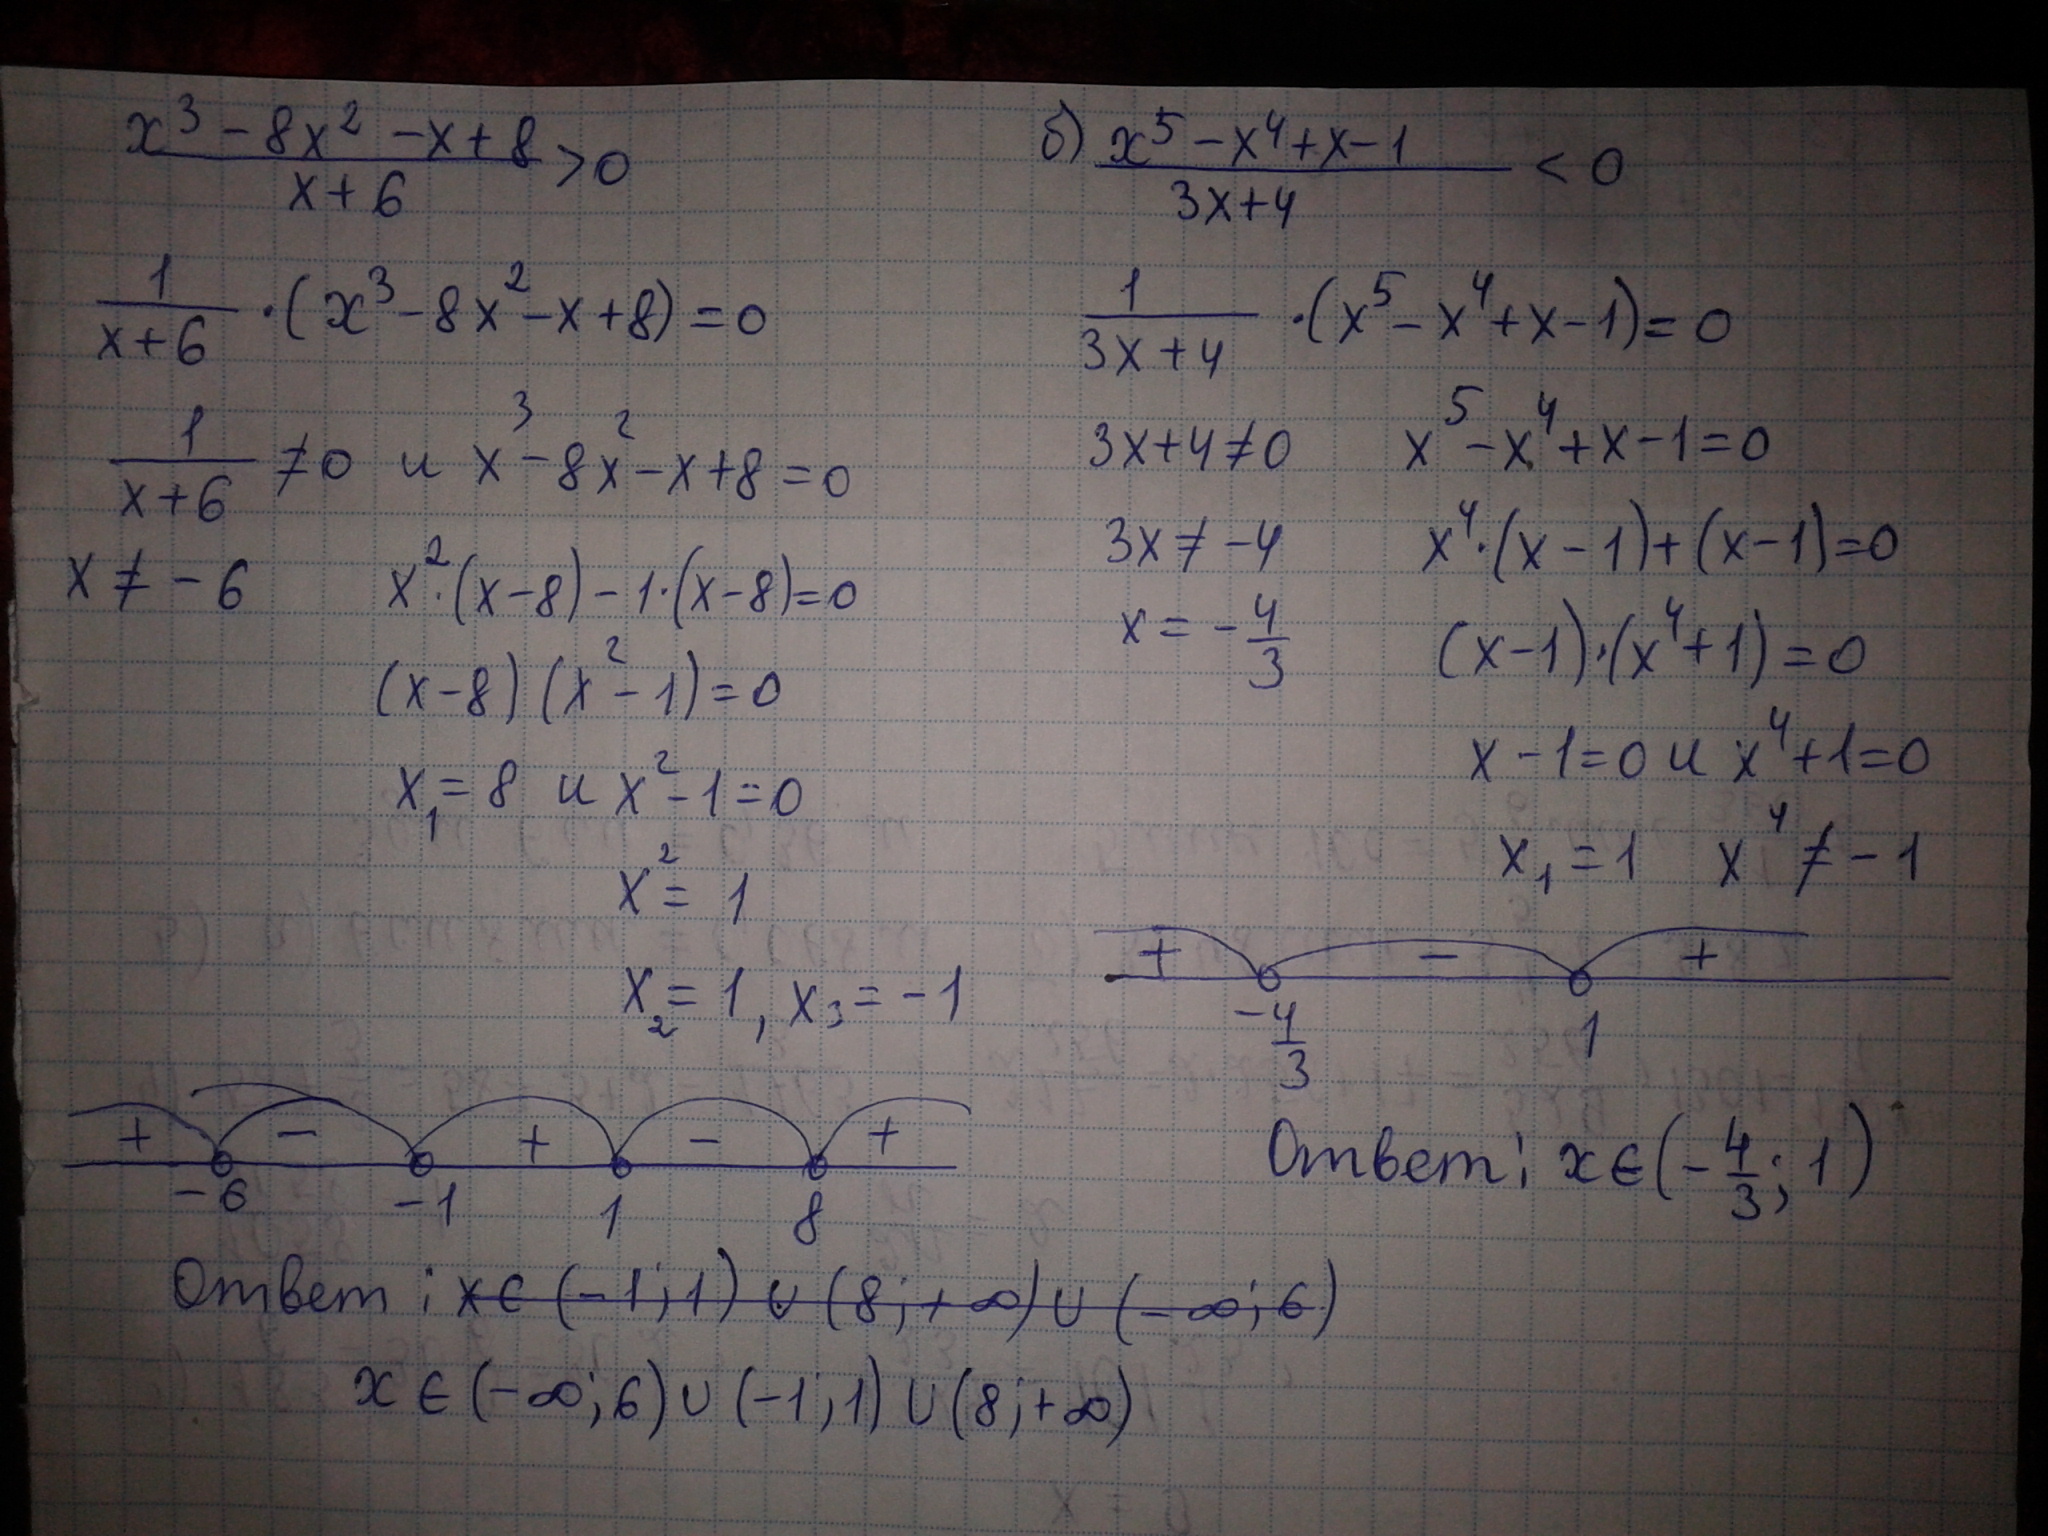 x³ - 8x² - x + 8 / x + 6 > 0
1 / x + 6 · (x³ - 8x² - x + 8) = 0
1 / x + 6 ≠ 0 и x³ - 8x² - x + 8 = 0
x ≠ - 6 x² · (x - 8) - 1 · (x - 8) = 0
(x - 8) (x² - 1) = 0
x₁ = 8 и x² - 1 = 0
x² = 1
x₂ = 1, x₃ = - 1
+ - + - +
- 6 - 1 1 8
Ответ: x ∈ (- 1; 1) ∪ (8; + ∞) ∪ (- ∞; 6)
x ∈ (- ∞; 6) ∪ (- 1; 1) ∪ (8; + ∞)
б) x⁵ - x⁴ + x - 1 / 3x + 4 < 0
1 / 3x + 4 · (x⁵ - x⁴ + x - 1) = 0
3x + 4 ≠ 0 x⁵ - x⁴ + x - 1 = 0
3x ≠ - 4 x⁴ · (x - 1) + (x - 1) = 0
x = - 4/3 (x - 1) · (x⁴ + 1) = 0
x - 1 = 0 и x⁴ + 1 = 0
x₁ = 1 x⁴ ≠ - 1
+ - +
- 4/3 1
Ответ: x ∈ (- 4/3; 1)